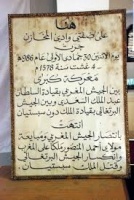 هنا
على ضفتي وادي المخازن
جرت
يوم الاثنين 30 جمادى الأولى عام 986 هـ
4 غشت سنة 1578 م
معركة كبرى
بين الجيش المغربي بقيادة السلطان
عبد الملك السعدي وبين الجيش
البرتغالي بقيادة الملك دون سبستيان
انتهت
بانتصار الجيش المغربي ومبايعة
مولاي أحمد المنصور ملكا على المغرب
وانكسار الجيش البرتغالي
وقتل الملك سبستيان